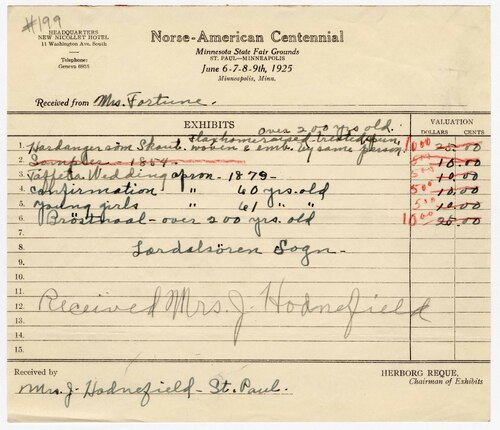 #199
HEADQUARTERS
NEW NICOLLET HOTEL
11 Washington Ave. South
Telephone:
Geneva 6925
Norse-American Centennial
Minnesota State Fair Grounds
ST. PAUL—MINNEAPOLIS
June 6-7-8-9th, 1925
Minneapolis, Minn.
Received from Mrs. Fortune.
EXHIBITS
VALUATION
DOLLARS CENTS
over 200 yrs old.
1. Hardangersom Skout. woven & emb. by same person. 10 00 25.00
2. Sampler - 1854. 5 00 10.00
3. Taffeta Wedding apron - 1879 - 5 00 10.00
4. Confirmation " 60 yrs. old 5 00 10.00
5. Young girls " 61 " " 5 00 10.00
6. Bröstnaal - over 200 yrs. old 10 00 25.00
7.
8. Lærdalsören Sogn -
9.
10.
11.
12. Received Mrs. J. Hodnefield
13.
14.
15.
Received by
HERBORG REQUE,
Chairman of Exhibits
Mrs. J. Hodnefield - St. Paul.